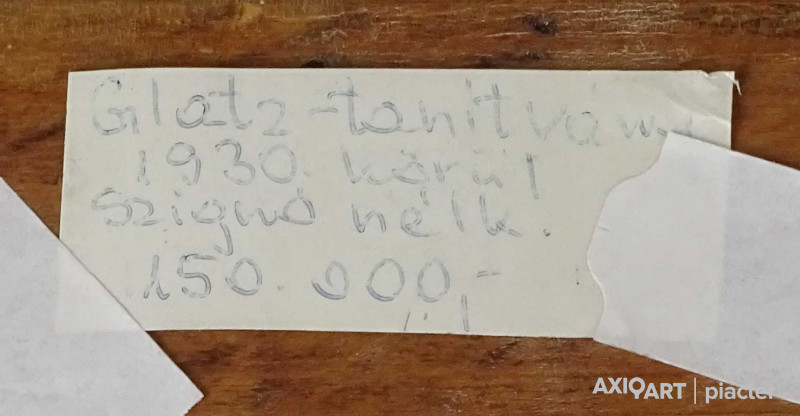 Glatz-tanítvány
1930. körül
Szignó nélk!
150.000,-
AXIOART | piacter